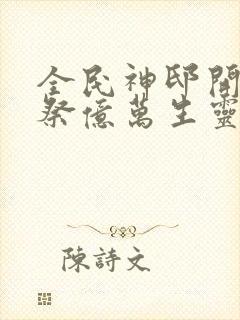 全民神邸開
祭億萬生靈
陳詩文